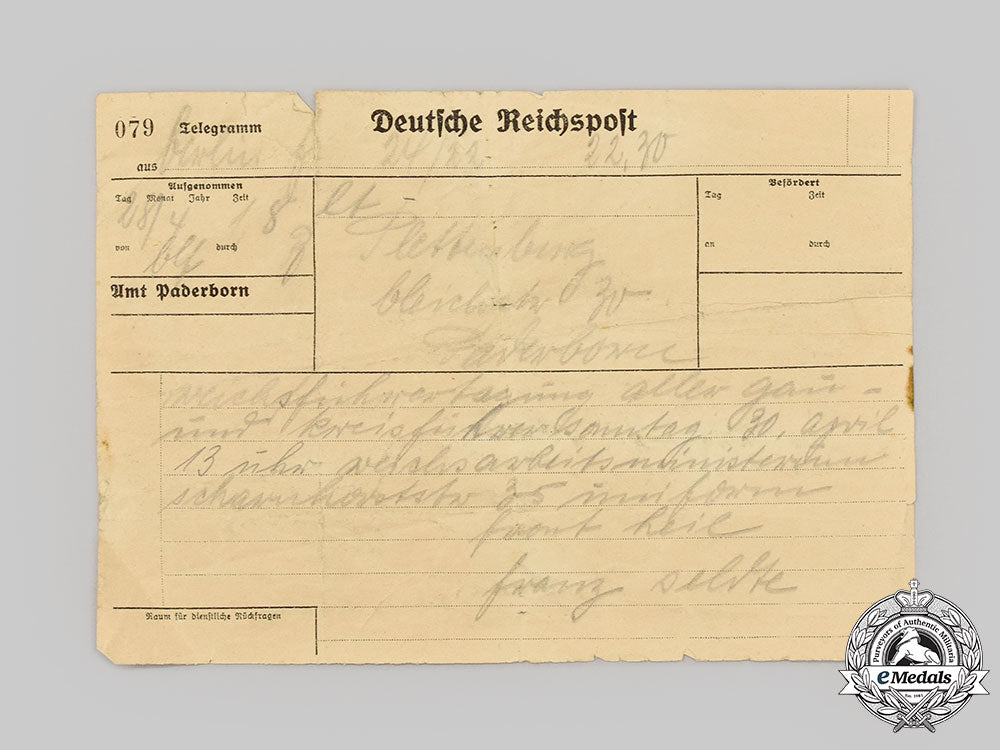 079 Telegramm Deutsche Reichspost
aus berlin 24/22 22,30
Aufgenommen
Tag Monat Jahr Zeit
28/4 18
von durch
Amt Paderborn
lt -
Plettenburg
bleichstr 30
Paderborn
Befördert
Tag Zeit
an durch
reichsführertagung aller gau -
und kreisführer sonntag 30. april
13 uhr reichsarbeitsministerium
scharnhorststr 35 uniform
front heil
franz seldte
Raum für dienstliche Rückfragen
Purveyors of Authentic Militaria
eMedals